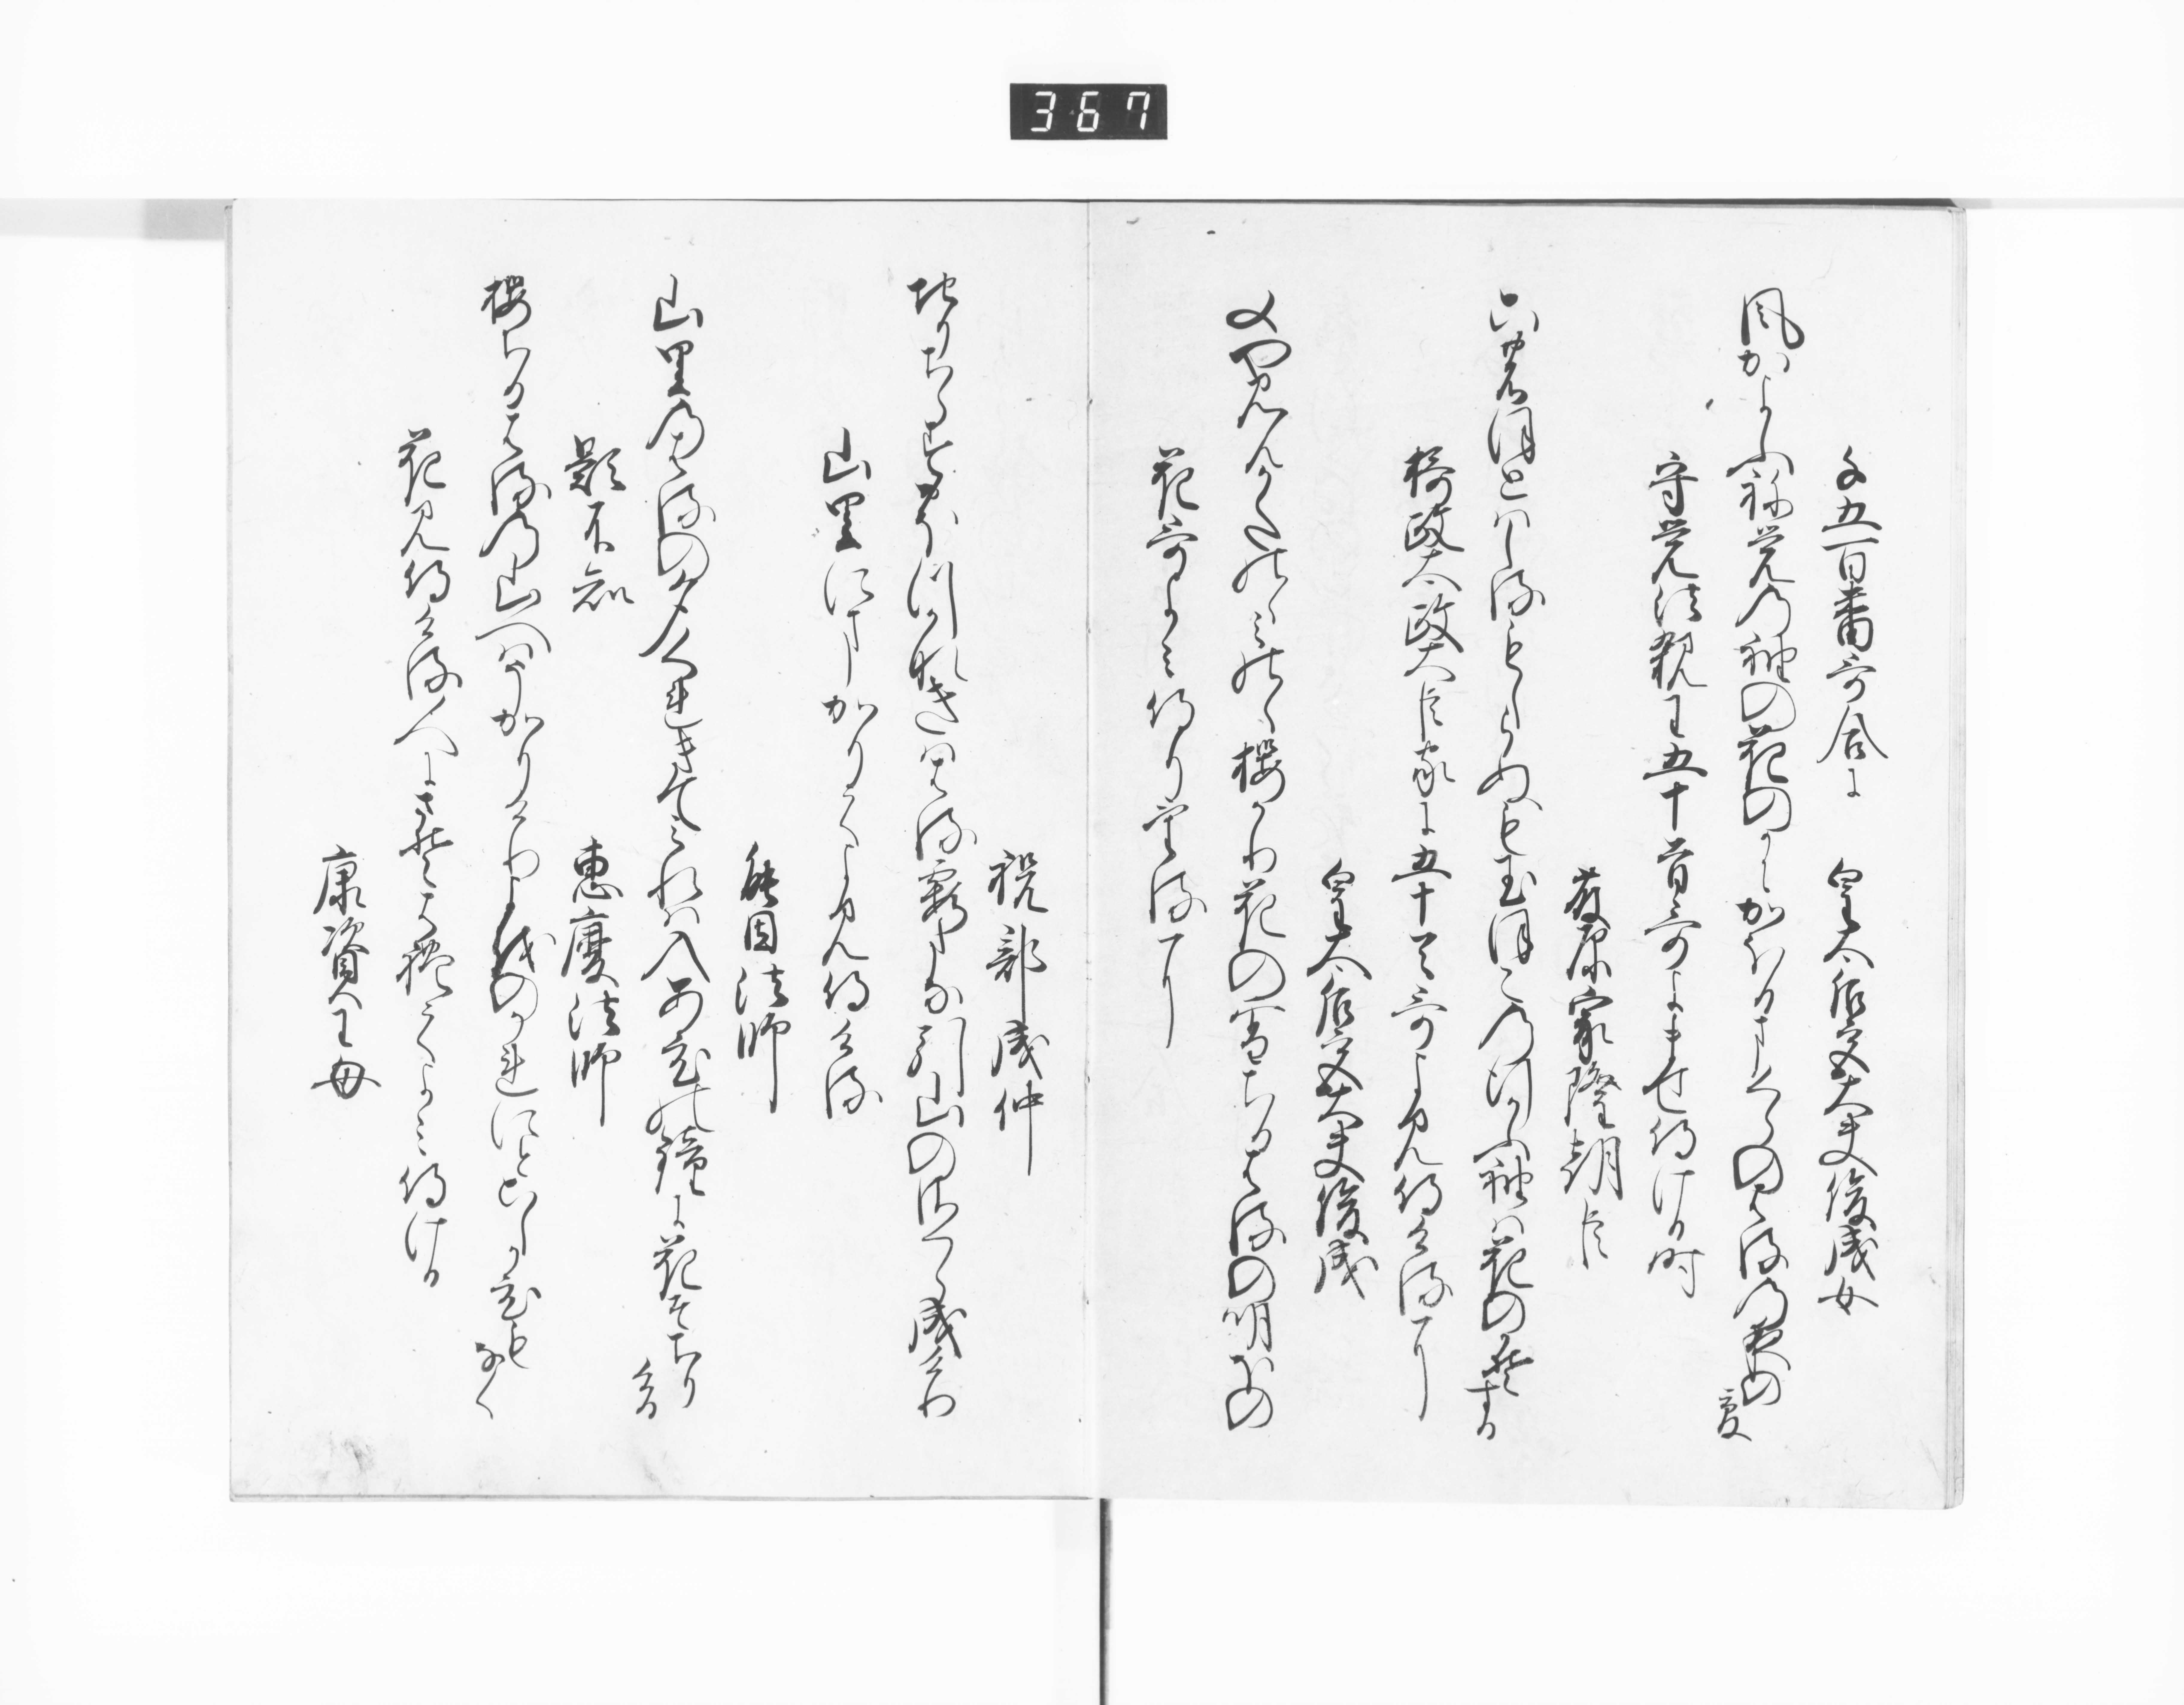 367
千五百番哥合に　皇太后宮大夫俊成女
風かよふ祢覚の袖の花のかにかほるまくらのはるの夜の
夢
守覚法親王五十首哥よませ侍ける時
藤原家隆朝臣
この程はしるもしらぬも玉ほこの行かふ袖は花の香する
摂政太政大臣家に五十首哥よみ侍けるに
皇太后宮大夫俊成
又や見んかたのゝみのゝ桜かり花の雪ちるはるの明ほの
花哥よみ侍りけるに
祝部成仲
ちりちらすおほつかなきははる霞たな引山のさくら成けり
山里にまかりてよみ侍ける
能因法師
山里のはるの夕くれきてみれは入あひの鐘に花そちり
ける
題不知
恵慶法師
桜ちるはるの山へはうかりけりよをのかれにとこしかひも
なく
花見侍ける人にさそはれてよみ侍ける
康資王母